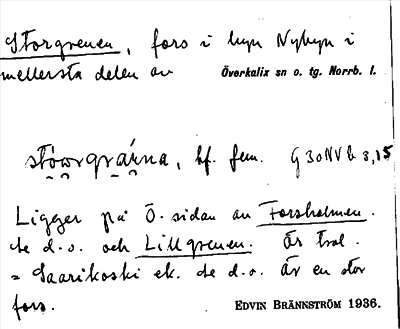 Storgrenen, fors i byn Nybyn i
mellersta delen av Överkalix sn o. tg. Norrb. l.
stòwrgrǻrna, bf. fem. G 30 NV b 3,15
Ligger på Ö. sidan av Forsholmen.
Se d.o. och Lillgrenen. Är trol.
= Saarikoski ek. Se d.o. Är en stor
fors. EDVIN BRÄNNSTRÖM 1936.